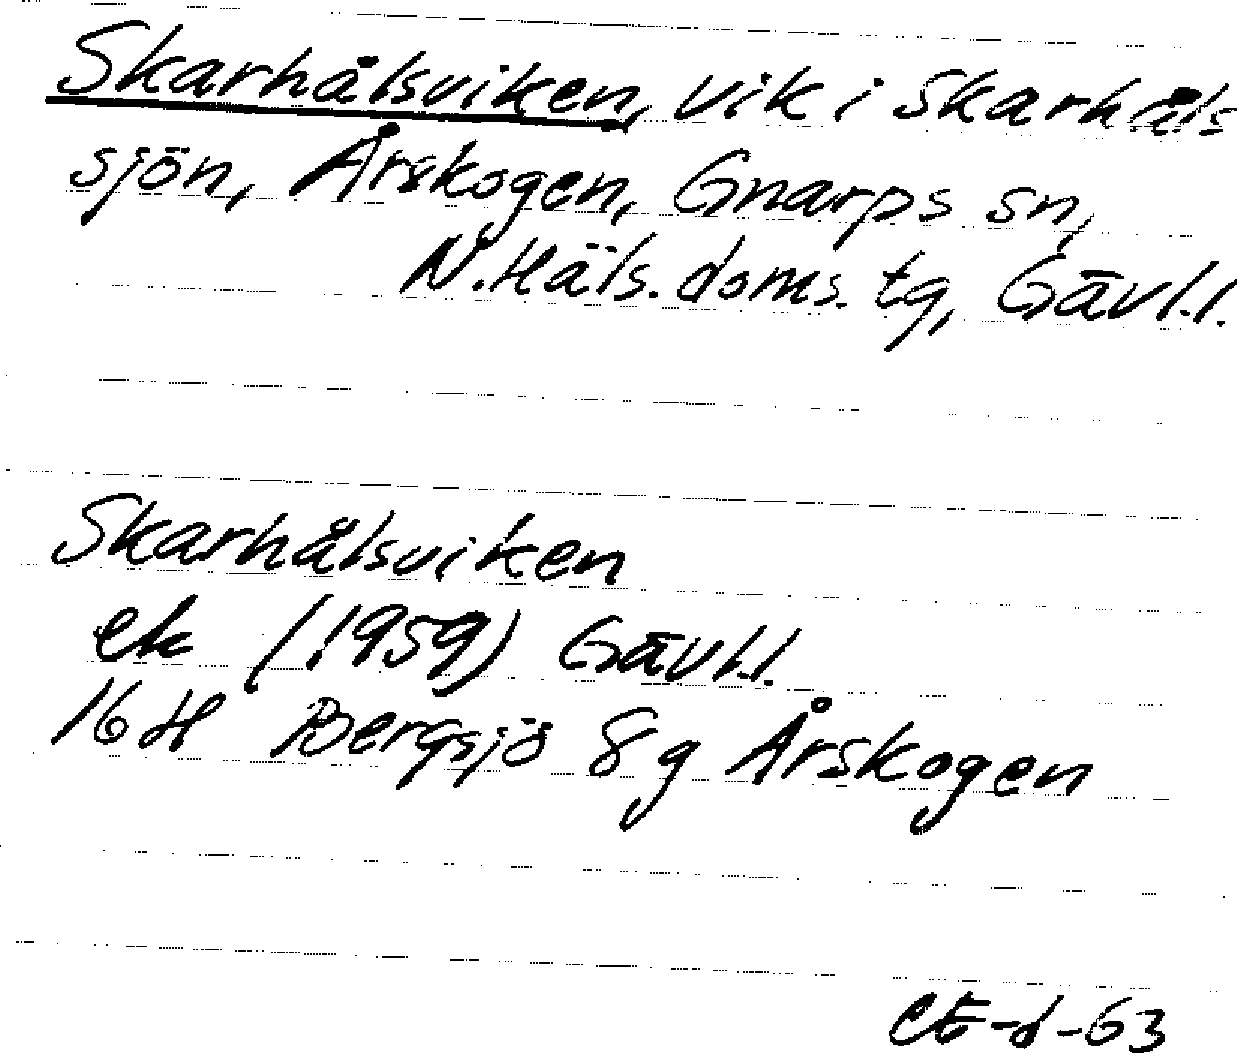 Skarhålsviken, vik i Skarhåls
sjön, Årskogen, Gnarps sn,
N. Häls. doms. tg, Gävl.l.
Skarhålsviken
ek (1959) Gävl.l.
16 H Bergsjö 8g Årskogen
CE-d-63